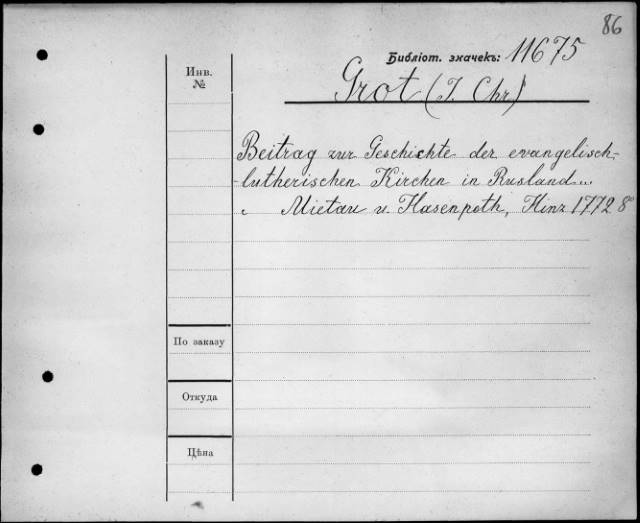 86
Библіот. значекъ: 11675
Инв.
№
Grot (J. Chr)
Beitrag zur Geschichte der evangelisch-
-lutherischen Kirchen in Rusland...
Mietau u. Hasenpoth, Hinz 1772 8°
По заказу
Откуда
Цѣна